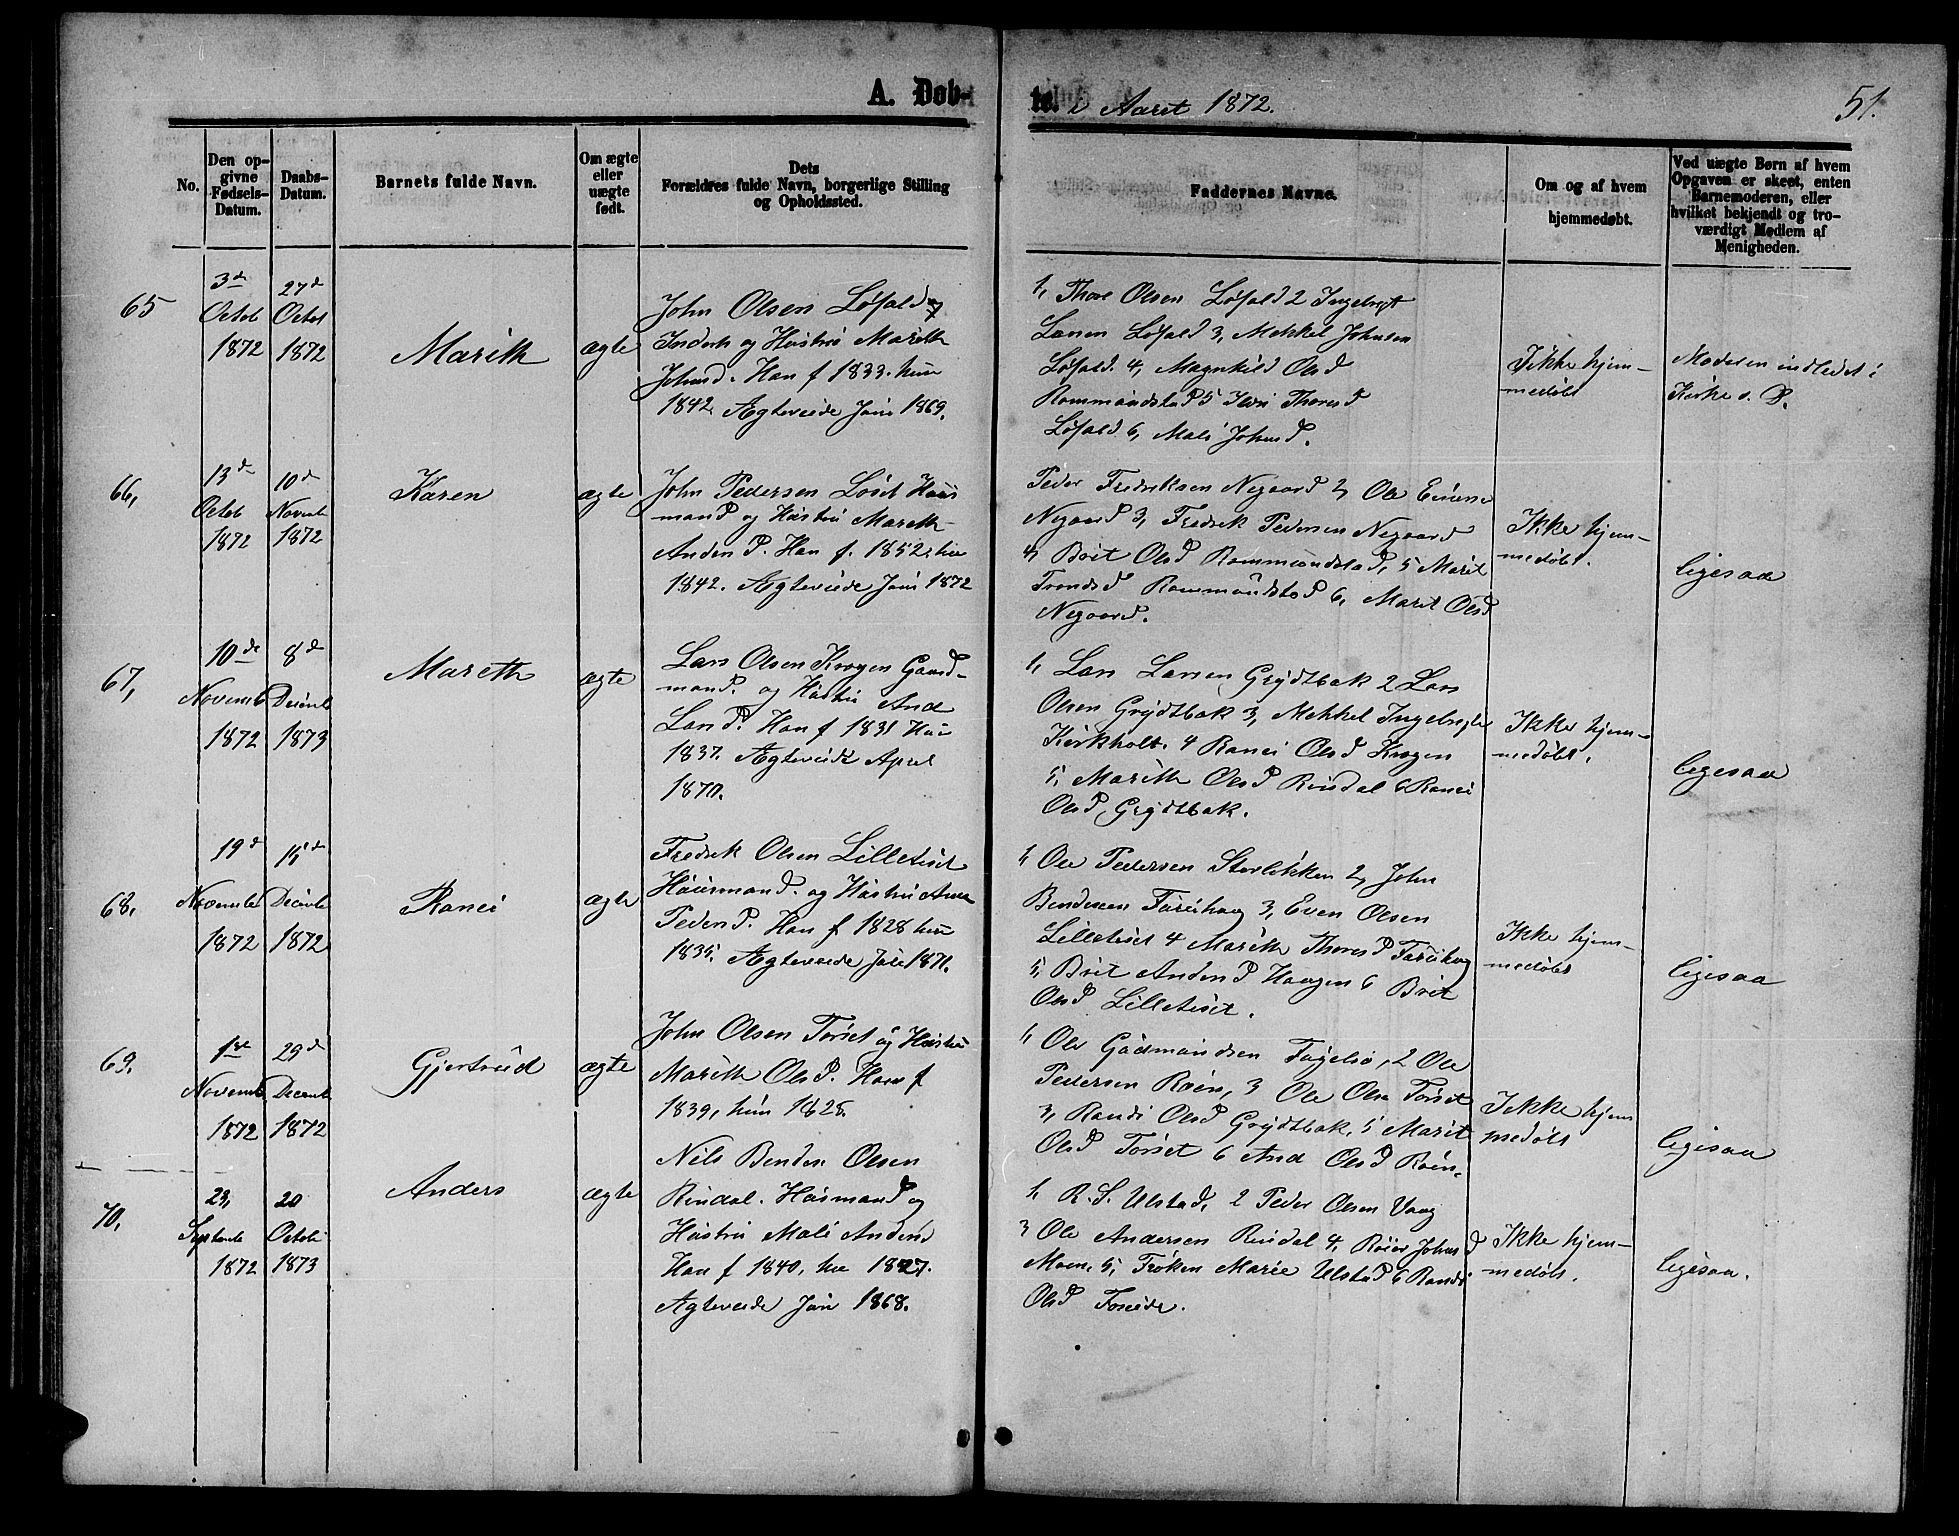 A. Døb-
te. i Aaret 1872.
51.
No.
Den op-
givne
Fødsels-
Datum.
Daabs-
Datum.
Barnets fulde Navn.
Om ægte
eller
uægte
født.
Dets
Forældres fulde Navn, borgerlige Stilling
og Opholdssted.
Faddernes Navne.
Om og af hvem
hjemmedøbt.
Ved uægte Børn af hvem
Opgaven er skeet, enten
Barnemoderen, eller
hvilket bekjendt og tro-
værdigt Medlem af
Menigheden.
65
3d
Octob
1872
27d
Octob
1872
Marith
ægte
John Olsen Løfald
Inderst og Hustru Marith
Johnsd. Han f 1833. hun
1842. Ægteviede Juni 1869.
1, Thore Olsen Løfald 2 Ingebrigt
Larsen Løfald 3, Mekkel Johnsen
Løfald. 4, Magnhild Olsd
Rommundstad 5 Thoresd
Løfald 6, Mali Johnsd.
Ikke hjem-
medøbt
Moderen indledet i
Kirke s. D.
66,
13d
Octob
1872
10d
Novemb
1872
Karen
ægte
John Pedersen Løset Huus
mand og Hustru Mareth
Andersd. Han f. 1852, hun
1842. Ægteviede Juni 1872
Peder Fredriksen Negaard 2, Ole Evense
Negaard 3, Fredrik Pedersen Negaard
4, Brit Olsd Rommundstad, 5 Marit
Trondsd Rommundstad 6, Marit Olsd
Negaard.
Ikke hjem-
medøbt.
ligesaa
67,
10de
Novemb
1872
8d
Decemb
1873
Mareth
ægte
Lars Olsen Krogen Gaard-
mand. og Hustru And
Larsd. Han f 1831 Hun
1837. Ægteviede April
1870.
1, Lars Larsen Grydtbak 2 Lars
Olsen Grydtbak 3, Mekkel Ingebrigts
Kirkholt. 4 Ranei Olsd Krogen
5, Marith Olsd Rindal 6 Ranei
Olsd Grydtbak.
Ikke hjem-
medøbt.
ligesaa
68.
19d
Novembe
1872
15d
Decembe
1872
Ranei
ægte
Fredrik Olsen Lilletiset
Huusmand. og Hustru Ane
Pedersd. Han f 1828 hun
1835. Ægteviede Juni 1871.
1, Ole Pedersen Storlikken 2, John
Bendixen 3, Even Olsen
Lilletiset 4 Marith Thoresd
5, Brit Andersd Haugen 6 Brit
Olsd Lilletiset.
Ikke hjem-
medøbt
ligesaa
69.
1ste
Novemb
1872
29d
Decemb
1872
Gjertrud
ægte
John Olsen Torset og Hustru
Marith Olsd. Han f
1839, hun 1828.
1, Ole Gudmundsen Fugelsø, 2 Ole
Pedersen Røen, 3 Ole Olsen Torset
3, Randi Olsd Grydtbak. 5 Marit
Olsd Torset 6 And Olsd Røen.
Ikke hjem
medøbt
ligesaa
70,
23,
Septembe
1872
20
Octob
1873
Anders
ægte
Nils Bendix Olsen
Rindal. Husmand og
Hustru Mali Andersd
Han f 1840, hun 1827.
Ægteviede Juni 1868.
1, R. S. Ulstad, 2 Peder Olsen Vaag
3 Ole Andersen Rindal 4, Johnsd
Moen. 5, Frøken Marie Ulstad 6 Randi
Olsd
Ikke hjem-
medøbt.
ligesaa.